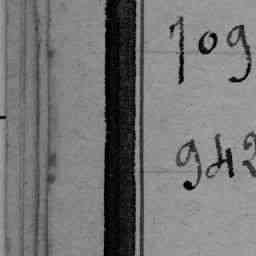 109
942